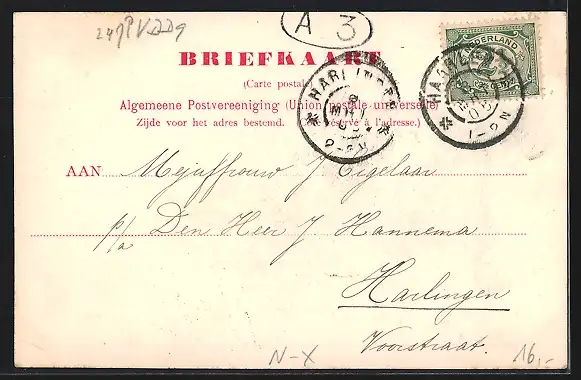 A 3
BRIEFKAART
(Carte postale)
Algemeene Postvereeniging (Union postale universelle)
Zijde voor het adres bestemd. (Côté réservé à l'adresse.)
NEDERLAND
HARLINGEN
AAN Mejuffrouw J Tigelaar
p/a Den Heer J Hannema
Harlingen
Voorstraat.
N-X
16,-